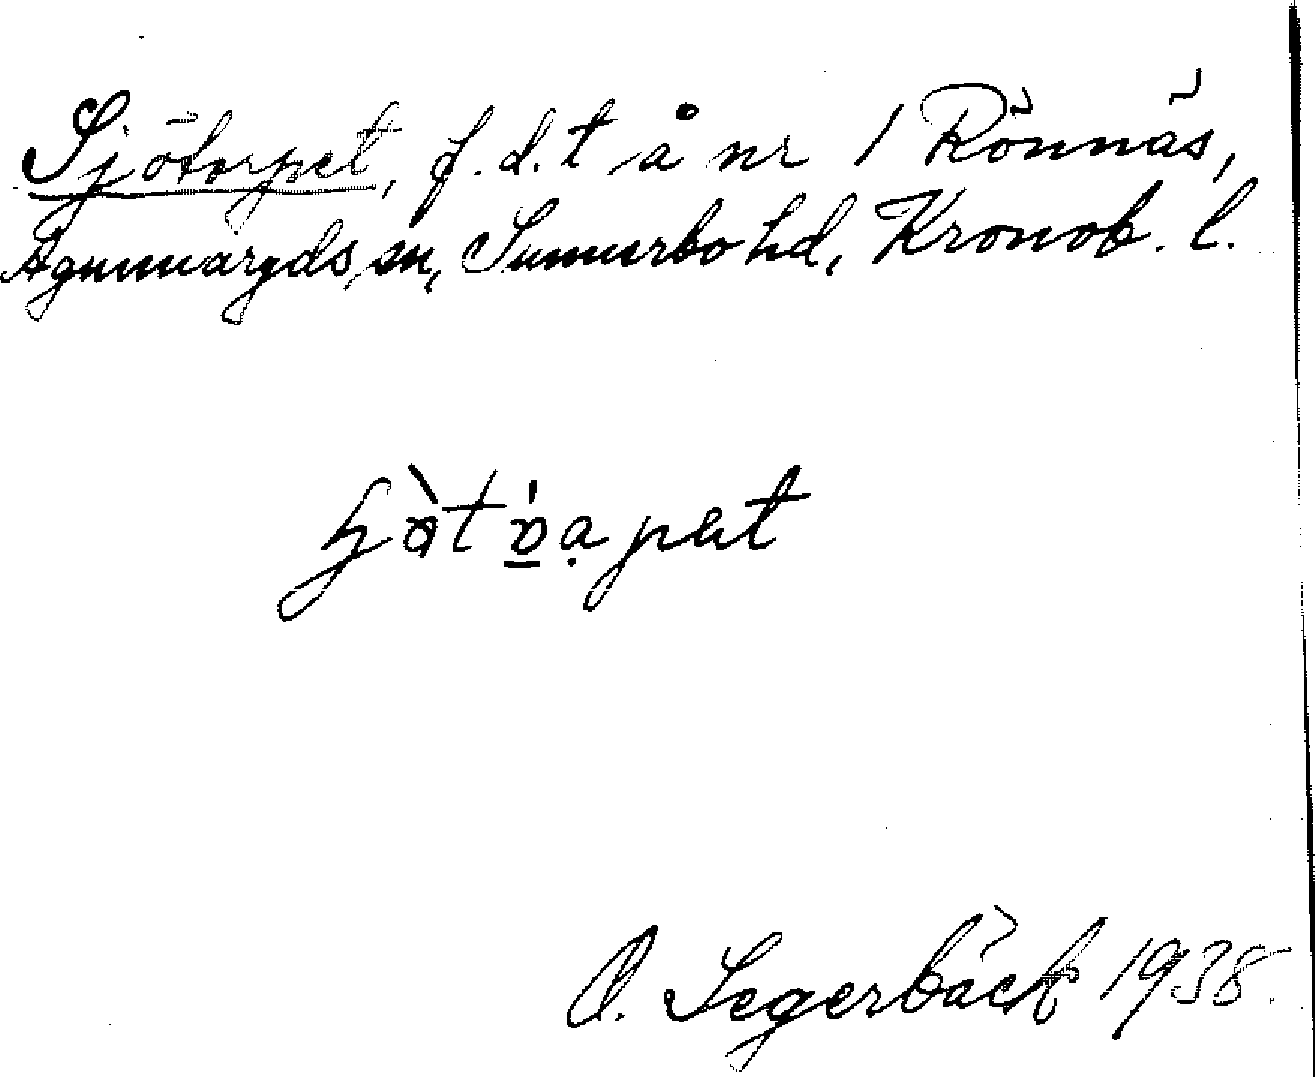 Sjötorpet, f.d.t å nr 1 Rönnäs,
Agunnaryds sn, Sunnerbo hd, Kronob. l.
O. Segerbäck 1938.